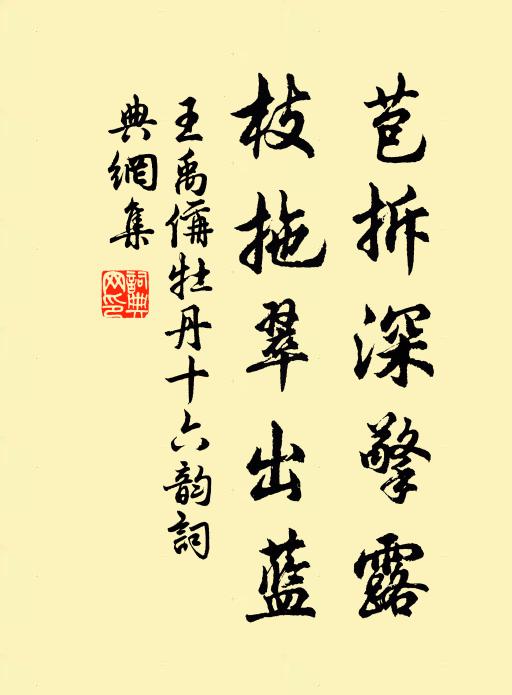 苞拆深擎露
枝拖翠出蓝
王禹偁牡丹十六韵词
典網集
詞典网印